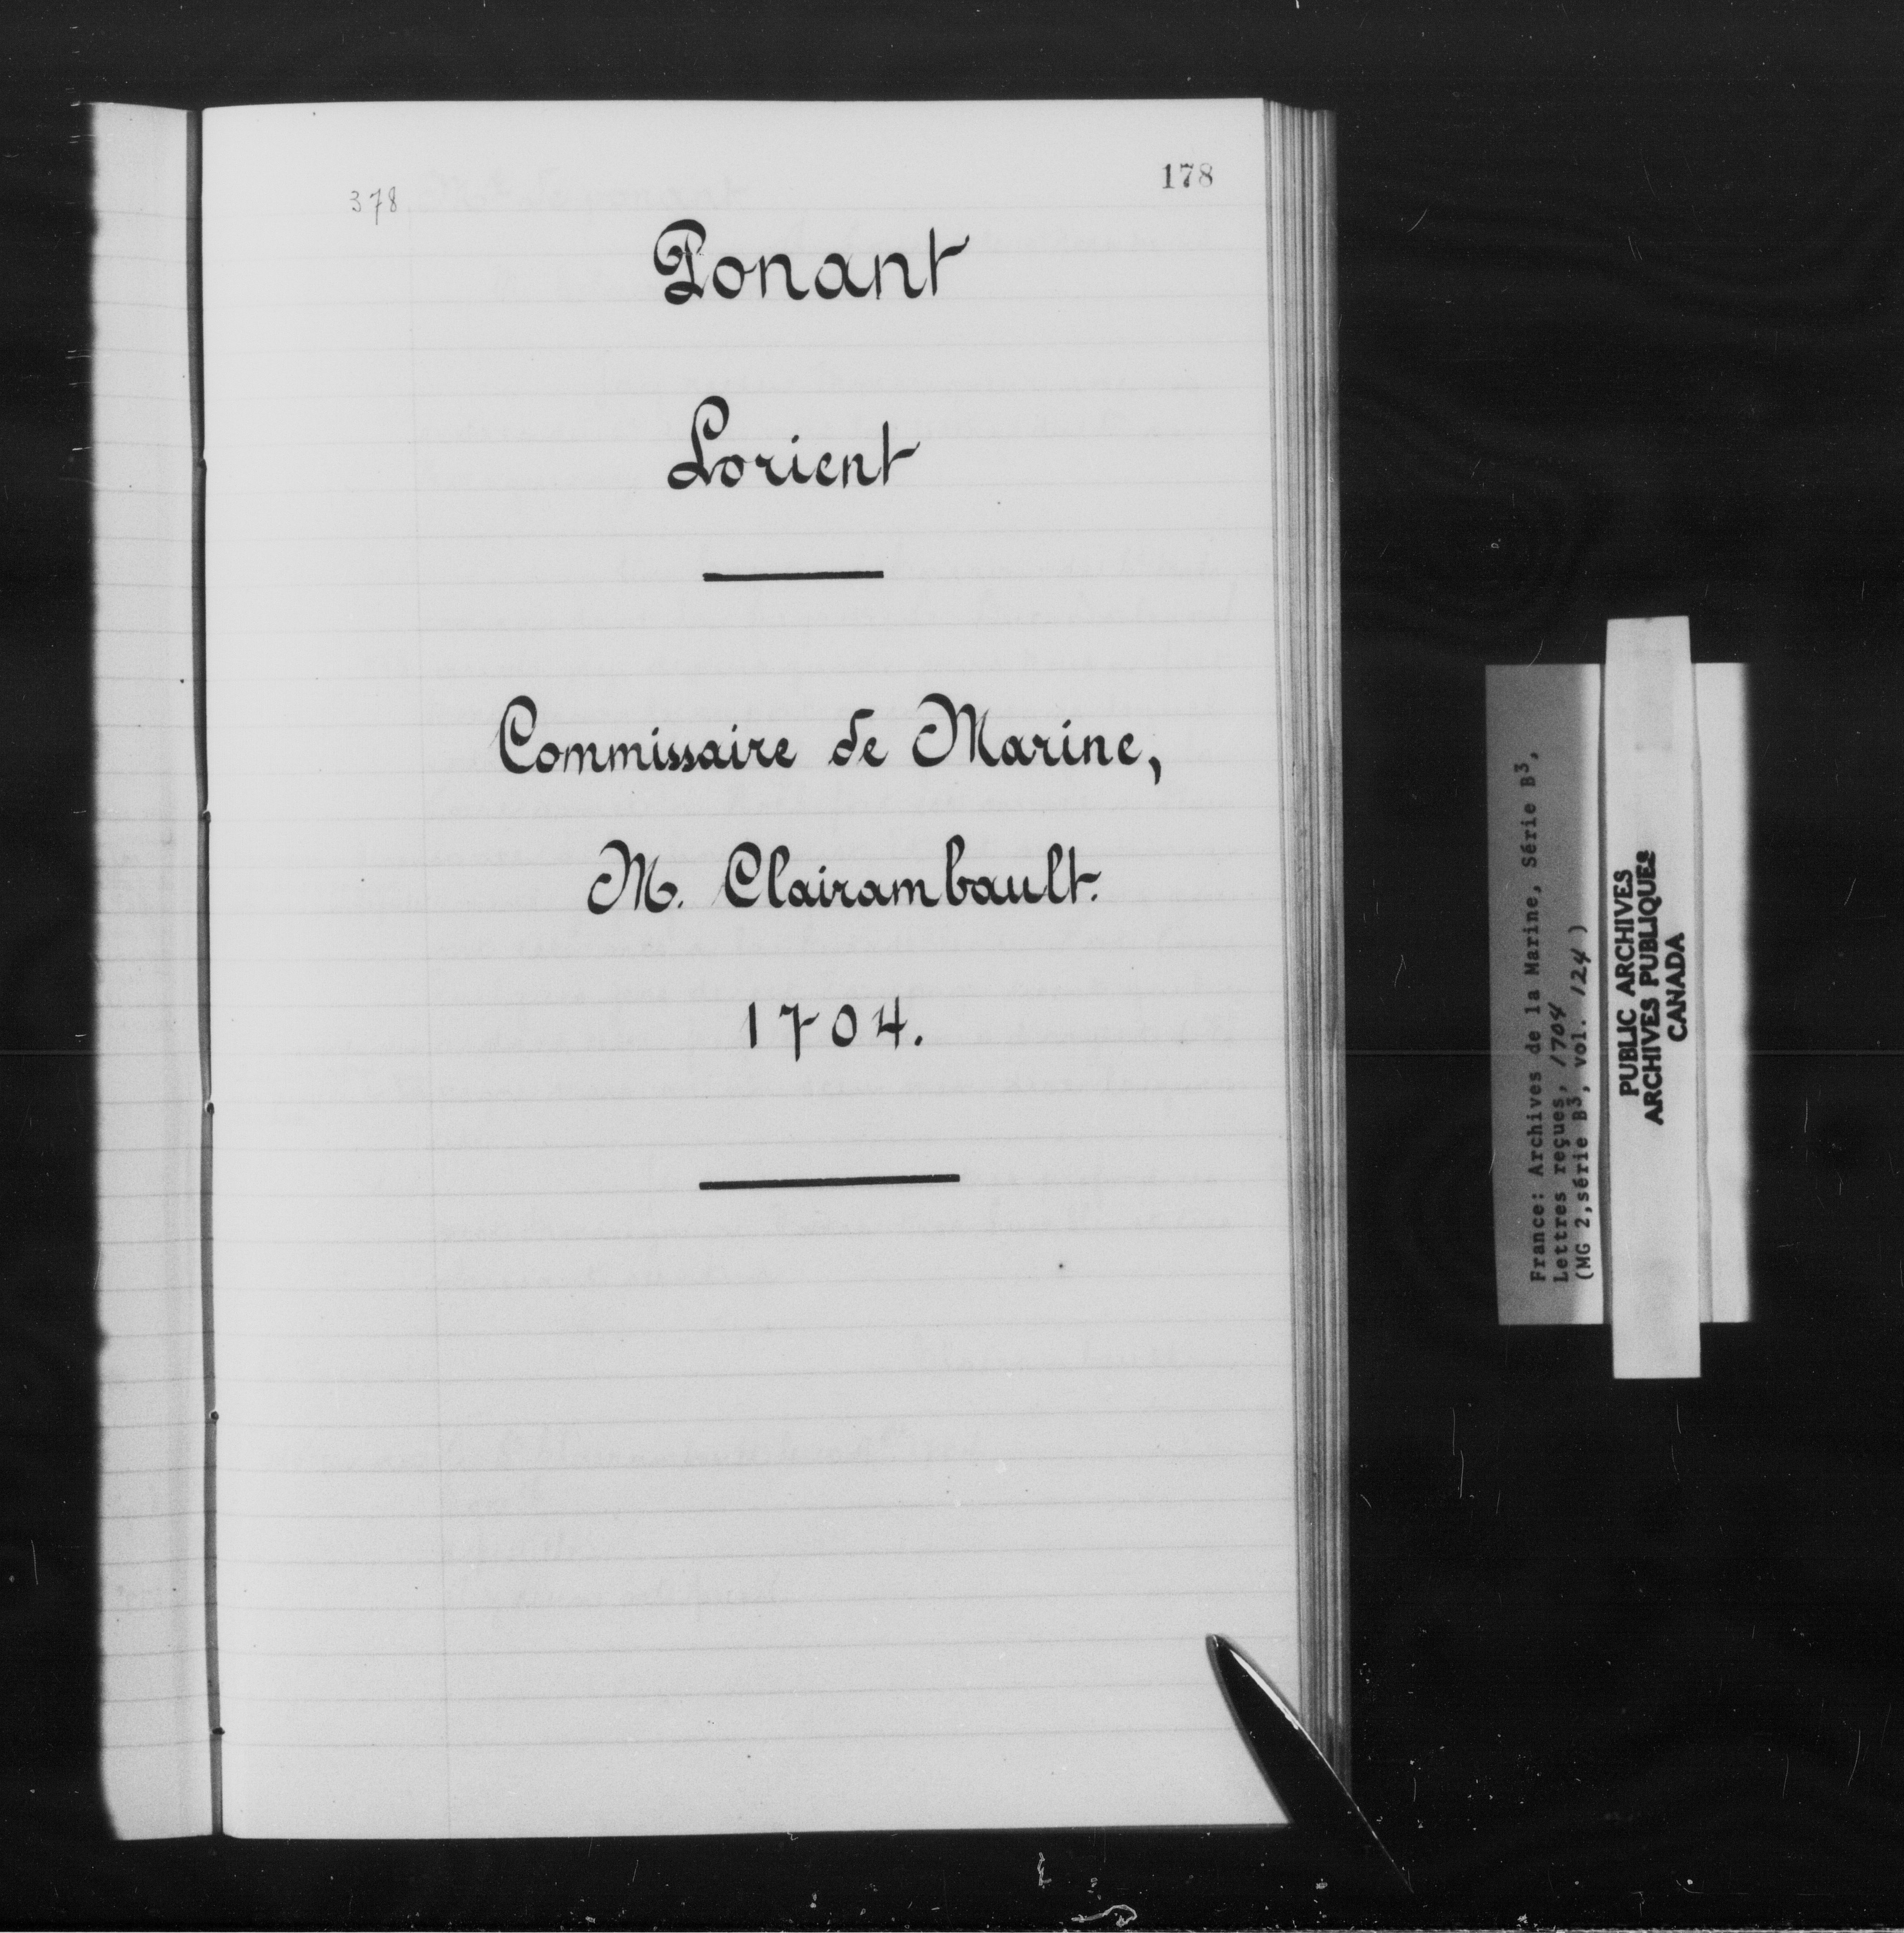 178
378
Ponant
Lorient
Commissaire de Marine,
M. Clairambault.
1704.
France: Archives de la Marine, Série B3,
Lettres reçues, 1704
(MG 2, série B3, vol. 124)
PUBLIC ARCHIVES
ARCHIVES PUBLIQUES
CANADA